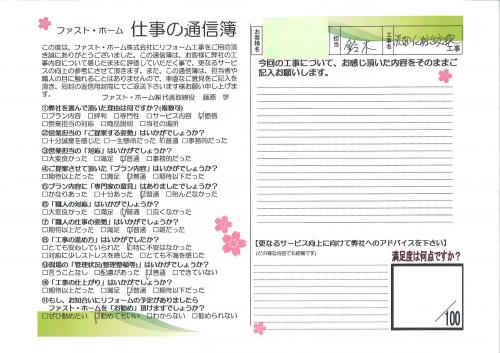 ファスト・ホーム 仕事の通信簿
この度は、ファスト・ホーム株式会社にリフォーム工事をご用命頂き誠にありがとうございました。この通信簿は、お客様に弊社の工事内容について感じたままに評価していただく事で、更なるサービスの向上の参考にさせて頂きます。また、この通信簿は、担当者や職人の目に触れることはありませんので、率直なご意見をご記入を頂き、同封の返信用封筒にてご返送下さいます様お願い申し上げます。
ファスト・ホーム㈱代表取締役 藤原 学
①弊社を選んで頂いた理由は何ですか?(複数可)
□プラン内容 □評判 □専門性 □サービス内容 □価格
□営業担当の対応 □商品説明 □当社の場所
②営業担当の「ご提案する姿勢」はいかがでしょうか?
□十分誠意を感じた □一生懸命だった □普通 □事務的だった
③営業担当の「対応」はいかがでしょうか?
□大変良かった □満足 □普通 □事務的だった
④ご提案させて頂いた「プラン内容」はいかがでしょうか?
□期待以上だった □満足 □普通 □期待以下だった
⑤プラン内容に「専門家の意見」はありましたでしょうか?
□かなりあった □十分あった □普通 □殆んどなかった
⑥「職人の対応」はいかがでしょうか?
□大変良かった □満足 □普通 □良くなかった
⑦「職人の仕事の姿勢」はいかがでしょうか?
□期待以上だった □満足 □普通 □雑だった
⑧「工事の進め方」はいかがでしたか?
□とても安心していられた □特に不安はなかった
□対応に少しストレスを感じた □とても不満を感じた
⑨現場の「管理状況(整理整頓等)」はいかがでしょうか?
□言うことなし □配慮があった □普通 □できていない
⑩「工事の仕上がり」はいかがでしょうか?
□期待以上だった □満足 □普通 □期待以下だった
⑪もし、お知合いにリフォームの予定がありましたら
ファスト・ホームを「お勧め」頂けますでしょうか?
□ぜひ勧めたい □勧めてもいい □わからない □勧められない
お客様名
担当
鈴木
工事名
工事
今回の工事について、お感じ頂いた内容をそのままご記入お願いします。
【更なるサービス向上に向けて弊社へのアドバイスを下さい】
(どの様な内容でも結構です)
満足度は何点ですか?
/100